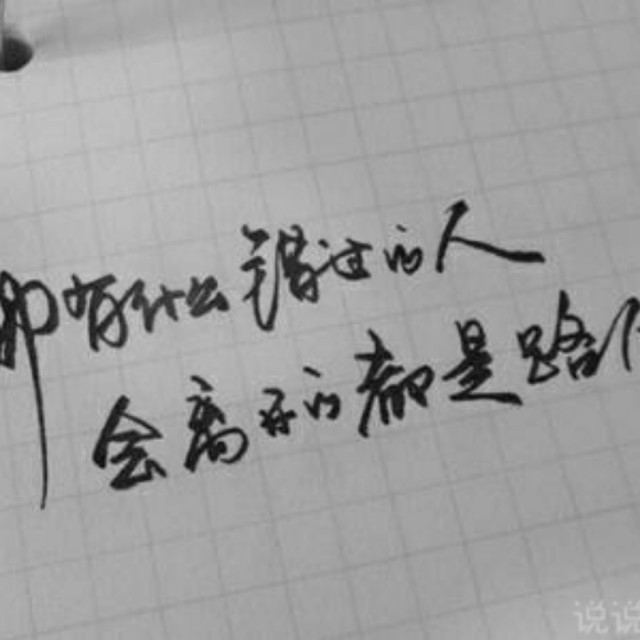 那有什么错过的人
会离开的都是路
说说